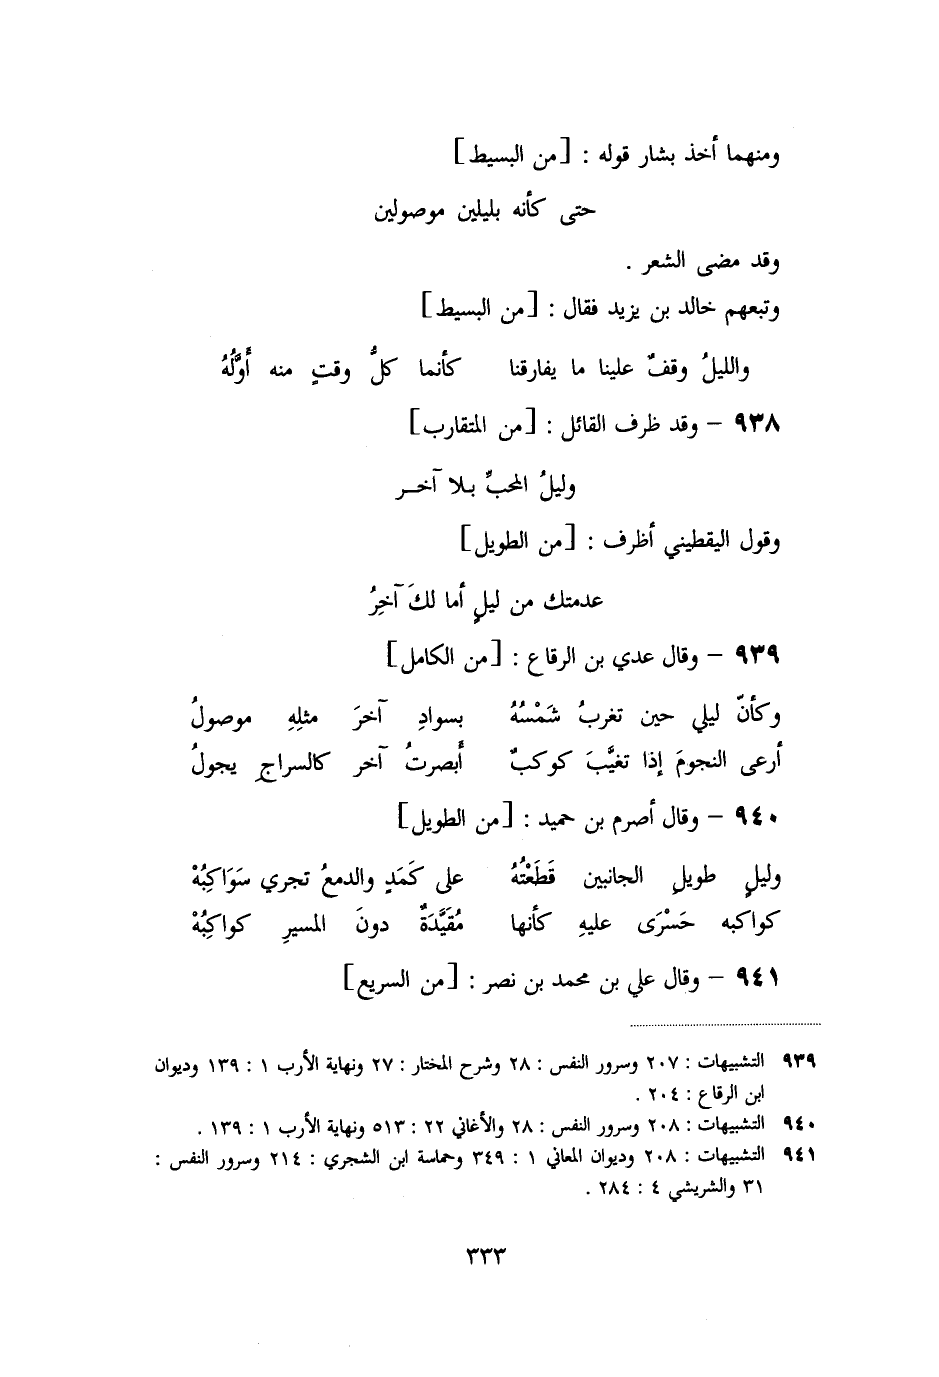 ومنهما أخذ بشار قوله : [من البسيط]
حتى كأنه بليلين موصولين
وقد مضى الشعر .
وتبعهم خالد بن يزيد فقال : [من البسيط]
والليلُ وقفٌ علينا ما يفارقنا كأنما كلُّ وقتٍ منه أَوَّلُهُ
٩٣٨ – وقد ظرف القائل : [من المتقارب]
وليلُ المحبِّ بلا آخر
وقول اليقطيني أظرف : [من الطويل]
عدمتك من ليلٍ أما لكَ آخِرُ
٩٣٩ – وقال عدي بن الرقاع : [من الكامل]
وكأنّ ليلي حين تغربُ شَمْسُهُ بسوادِ آخرَ مثلِهِ موصولُ
أرعى النجومَ إذا تغيَّبَ كوكبٌ أبصرتُ آخر كالسراجِ يجولُ
٩٤٠ – وقال أصرم بن حميد : [من الطويل]
وليلٍ طويلِ الجانبين قَطَعْتُهُ على كَمَدٍ والدمعُ تجري سَوَاكِبُهْ
كواكبه حَسْرَى عليهِ كأنها مُقَيَّدَةٌ دونَ المسيرِ كواكِبُهْ
٩٤١ – وقال علي بن محمد بن نصر : [من السريع]
٩٣٩ التشبيهات : ٢٠٧ وسرور النفس : ٢٨ وشرح المختار : ٢٧ ونهاية الأرب ١ : ١٣٩ وديوان
ابن الرقاع : ٢٠٤ .
٩٤٠ التشبيهات : ٢٠٨ وسرور النفس : ٢٨ والأغاني ٢٢ : ٥١٣ ونهاية الأرب ١ : ١٣٩ .
٩٤١ التشبيهات : ٢٠٨ وديوان المعاني ١ : ٣٤٩ وحماسة ابن الشجري : ٢١٤ وسرور النفس :
٣١ والشريشي ٤ : ٢٨٤ .
٣٣٣